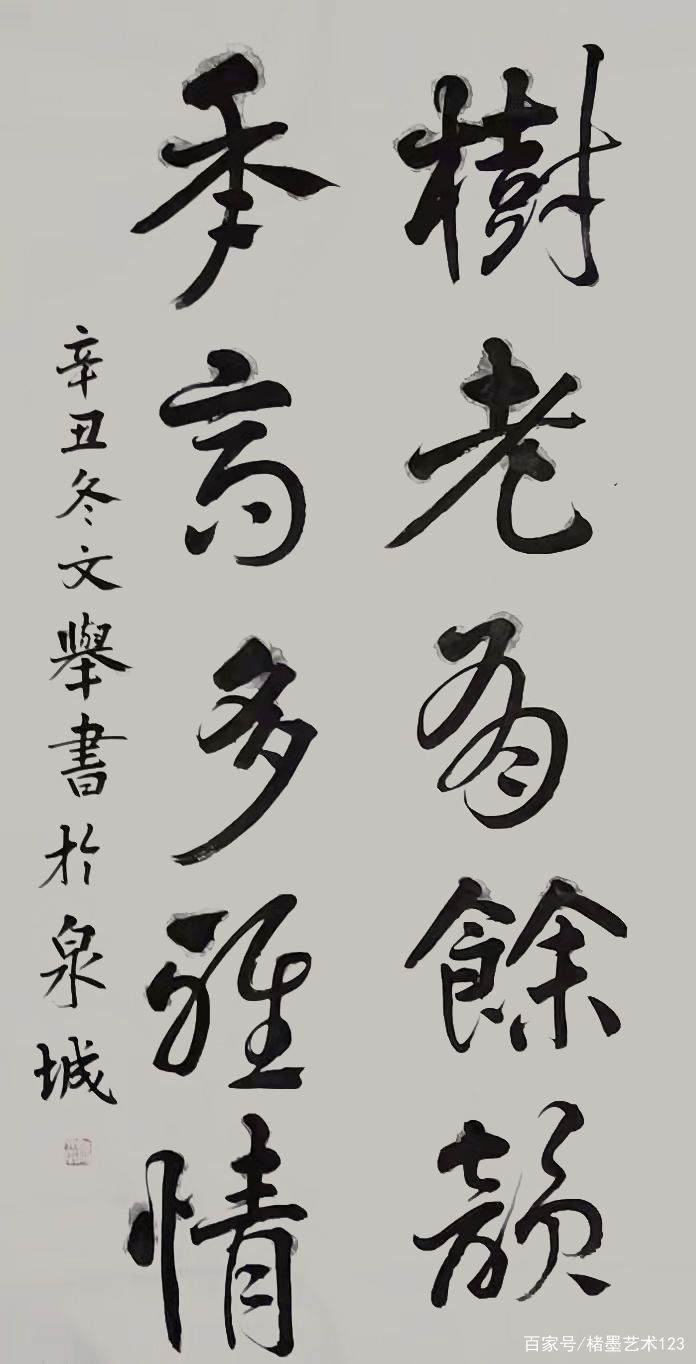 樹老有餘韻
秊高多雅情
辛丑冬文舉書於泉城
百家号/楮墨艺术123